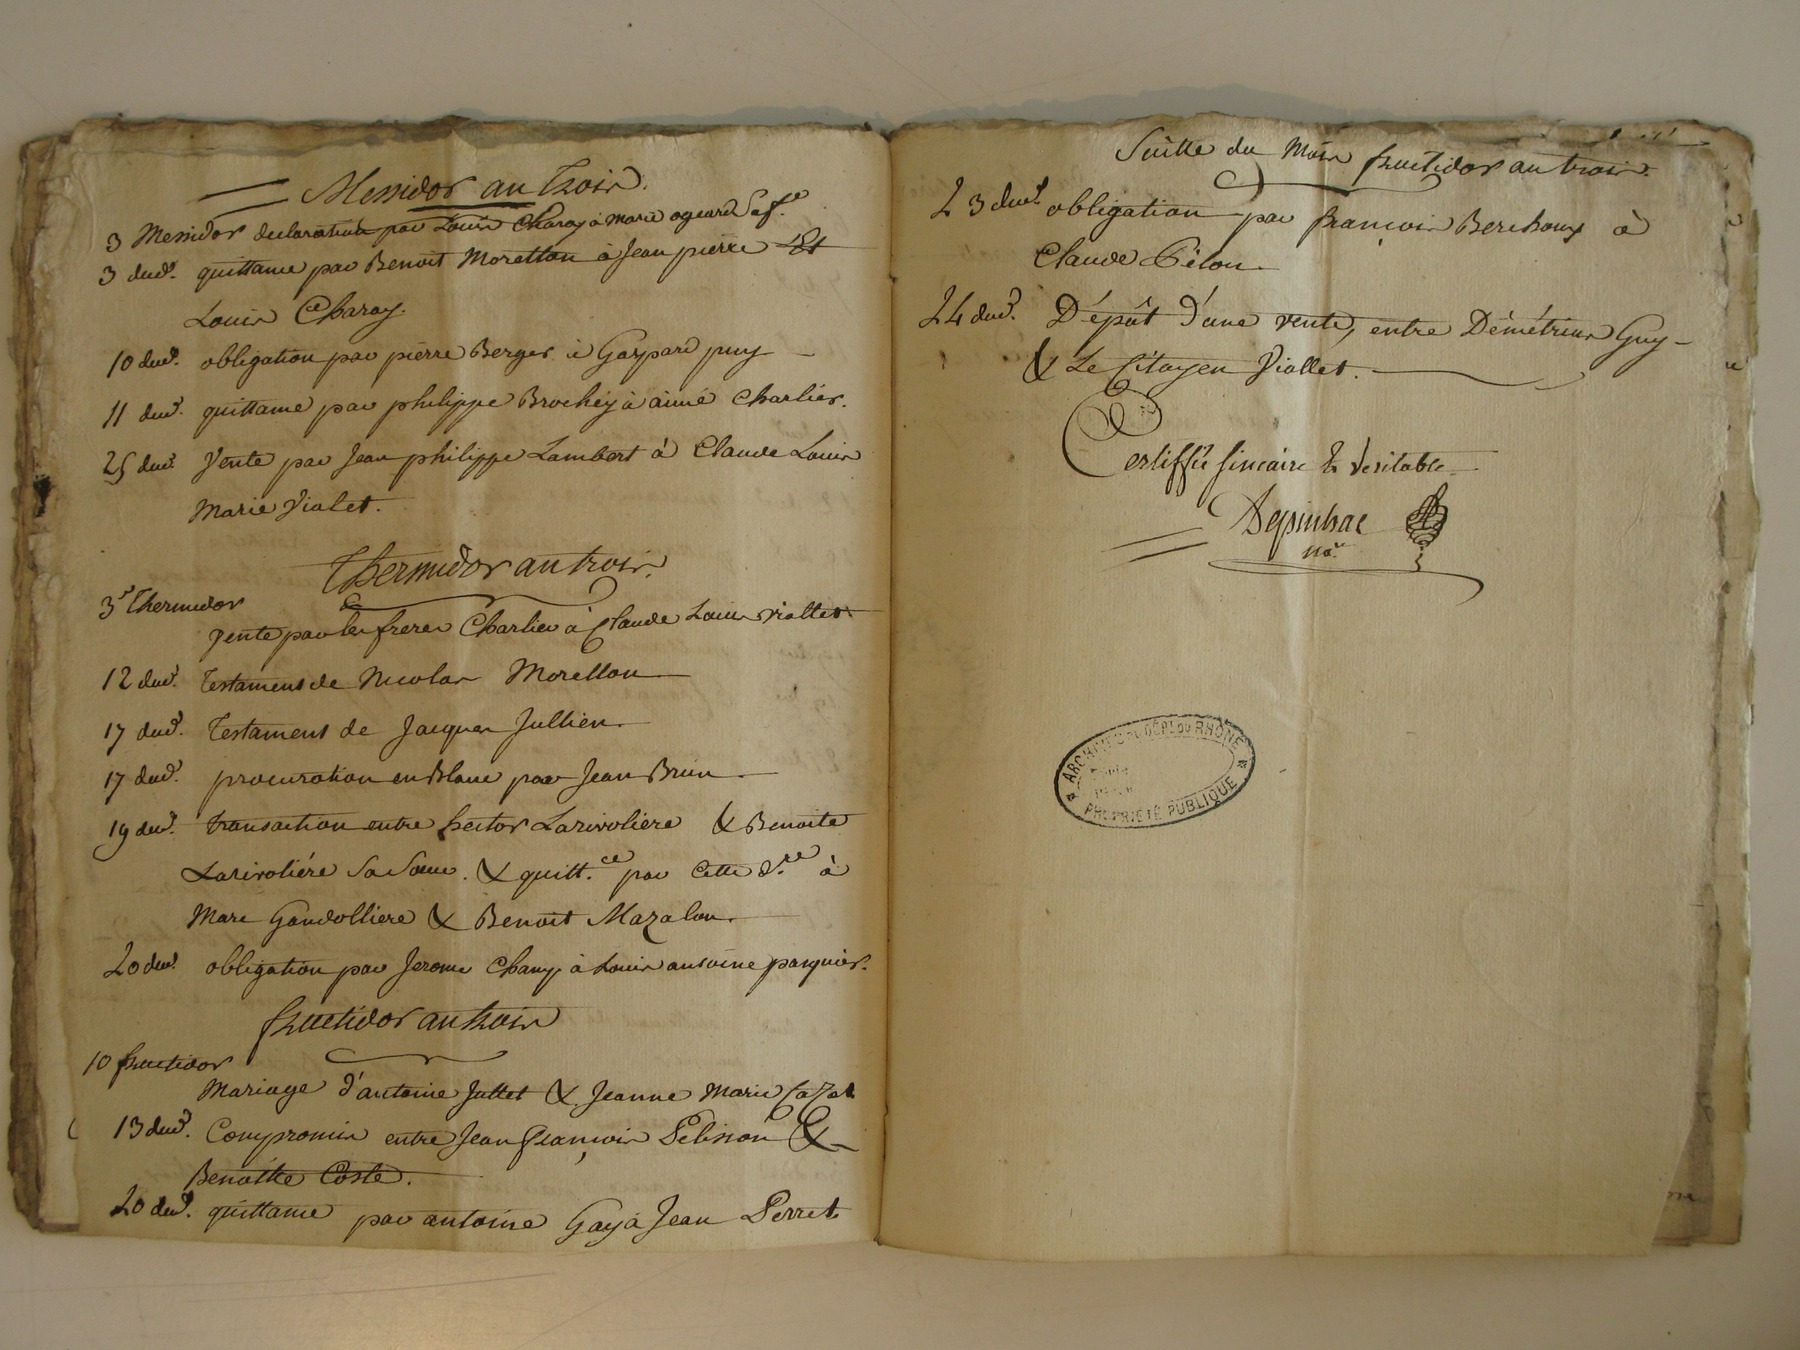 Messidor an trois.
3 Messidor declaration par Louis Charay à Marie ogeard Sa fe.
3 dud. quittance par Benoit Moretton à Jean pierre Et
Louis Charay.
10 dud. obligation par pierre Berger à Gaspard puy
11 dud. quittance par philippe Brochéy à aimé Charlier.
25 dud. Vente par Jean philippe Lambert à Claude Louis
Marie Violet.
Thermidor an trois.
3 Thermidor
vente par les freres Charlier à Claude Louis viollet
12 dud. Testament de Nicolas Morellon
17 dud. Testament de Jacques Jullien
17 dud. procuration en Blanc par Jean Brun
19 dud. transaction entre hector Larivoliere & Benoite
Larivoliére Sa Sœur. & quitt.ce par Cette d.re à
Marc Gandolliere & Benoit Mazalon.
20 dud. obligation par Jerome Champ à Louis antoine pasquier.
fructidor an trois
10 fructidor
Mariage d'antoine Juttet & Jeanne Marie Cazot
13 dud. Compromis entre Jean François Pelisson &
Benoitte Coste.
20 dud. quittance par antoine Gay à Jean Perret
Suitte du Mois fructidor an trois.
23 dud. obligation par françois Berchoux à
Claude Pélon
24 dud. Dépôt d'une vente, entre Démétrius Guy
& Le Citoyen Viollet.
Certiffié sincaire & Veritable
Depinhac
no.re
ARCHIVES DU DÉPT DU RHÔNE
PROPRIÉTÉ PUBLIQUE